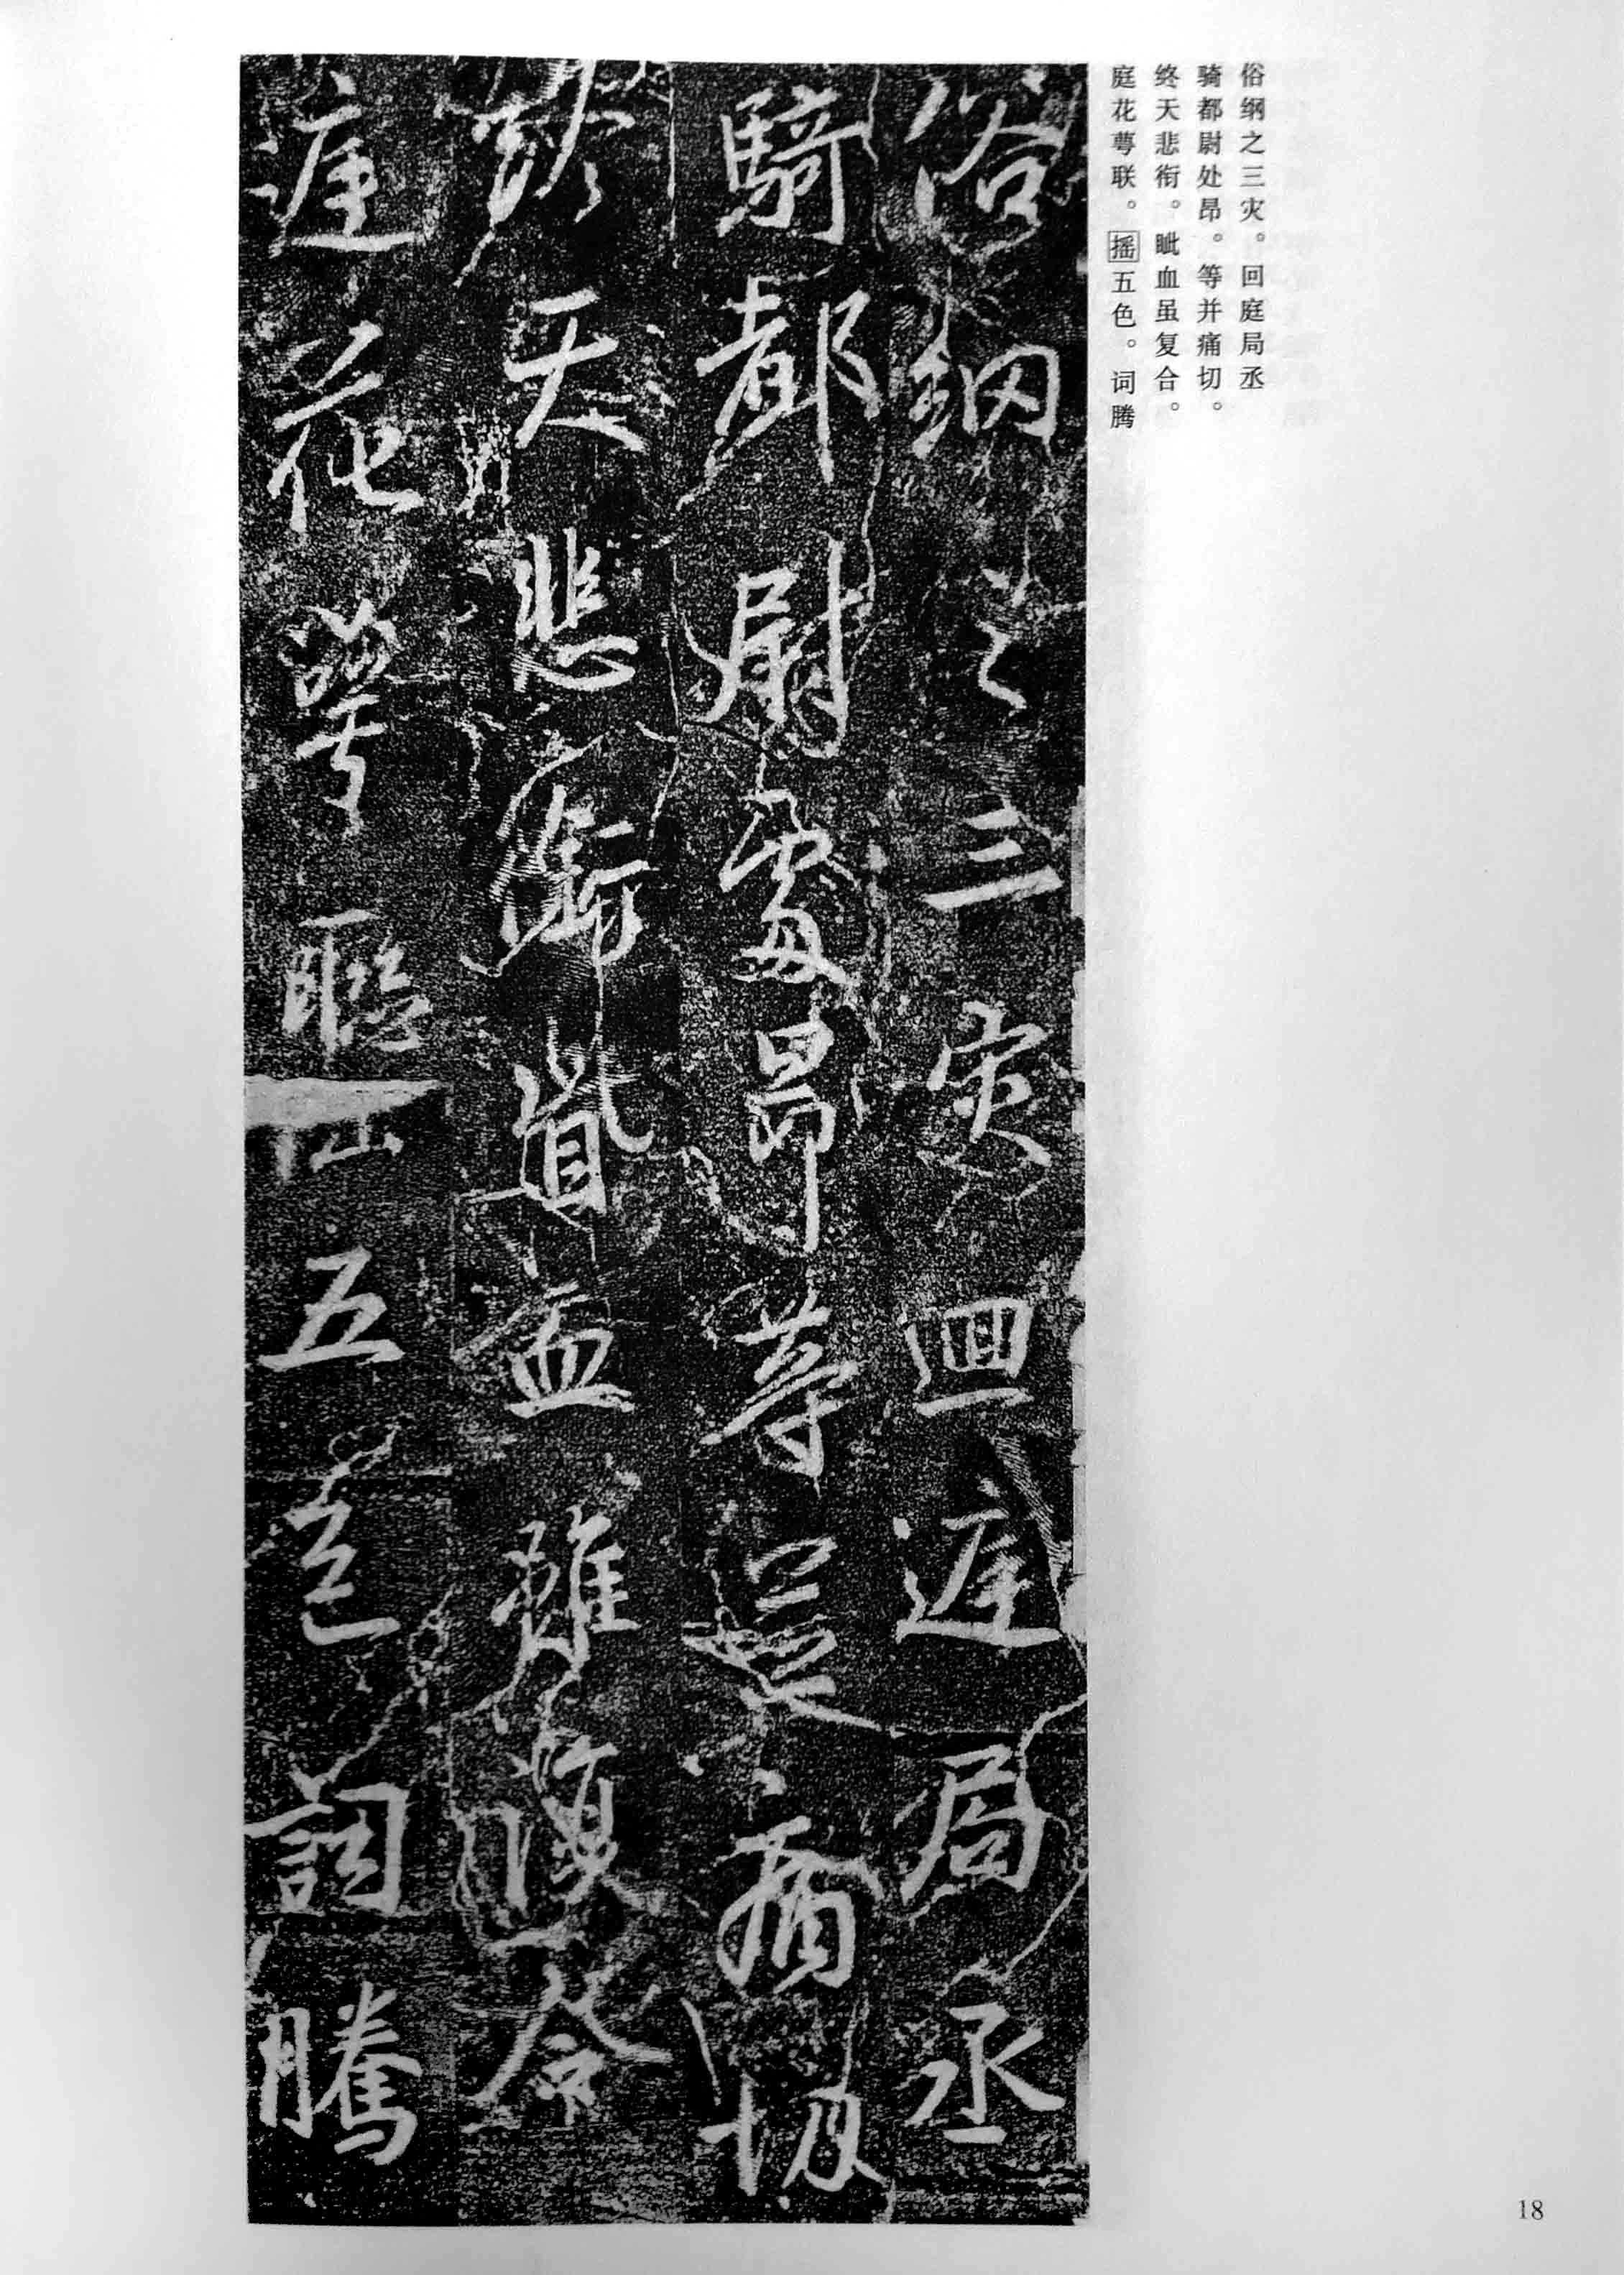 俗纲之三灾。回庭局丞
骑都尉处昂。等并痛切。
终天悲衔。眦血虽复合。
庭花萼联。摇五色。词腾
俗綱之三灾迴庭局丞
騎都尉處昂等並痛切
終天悲銜眥血雖復合
庭花萼聯五色詞騰
18